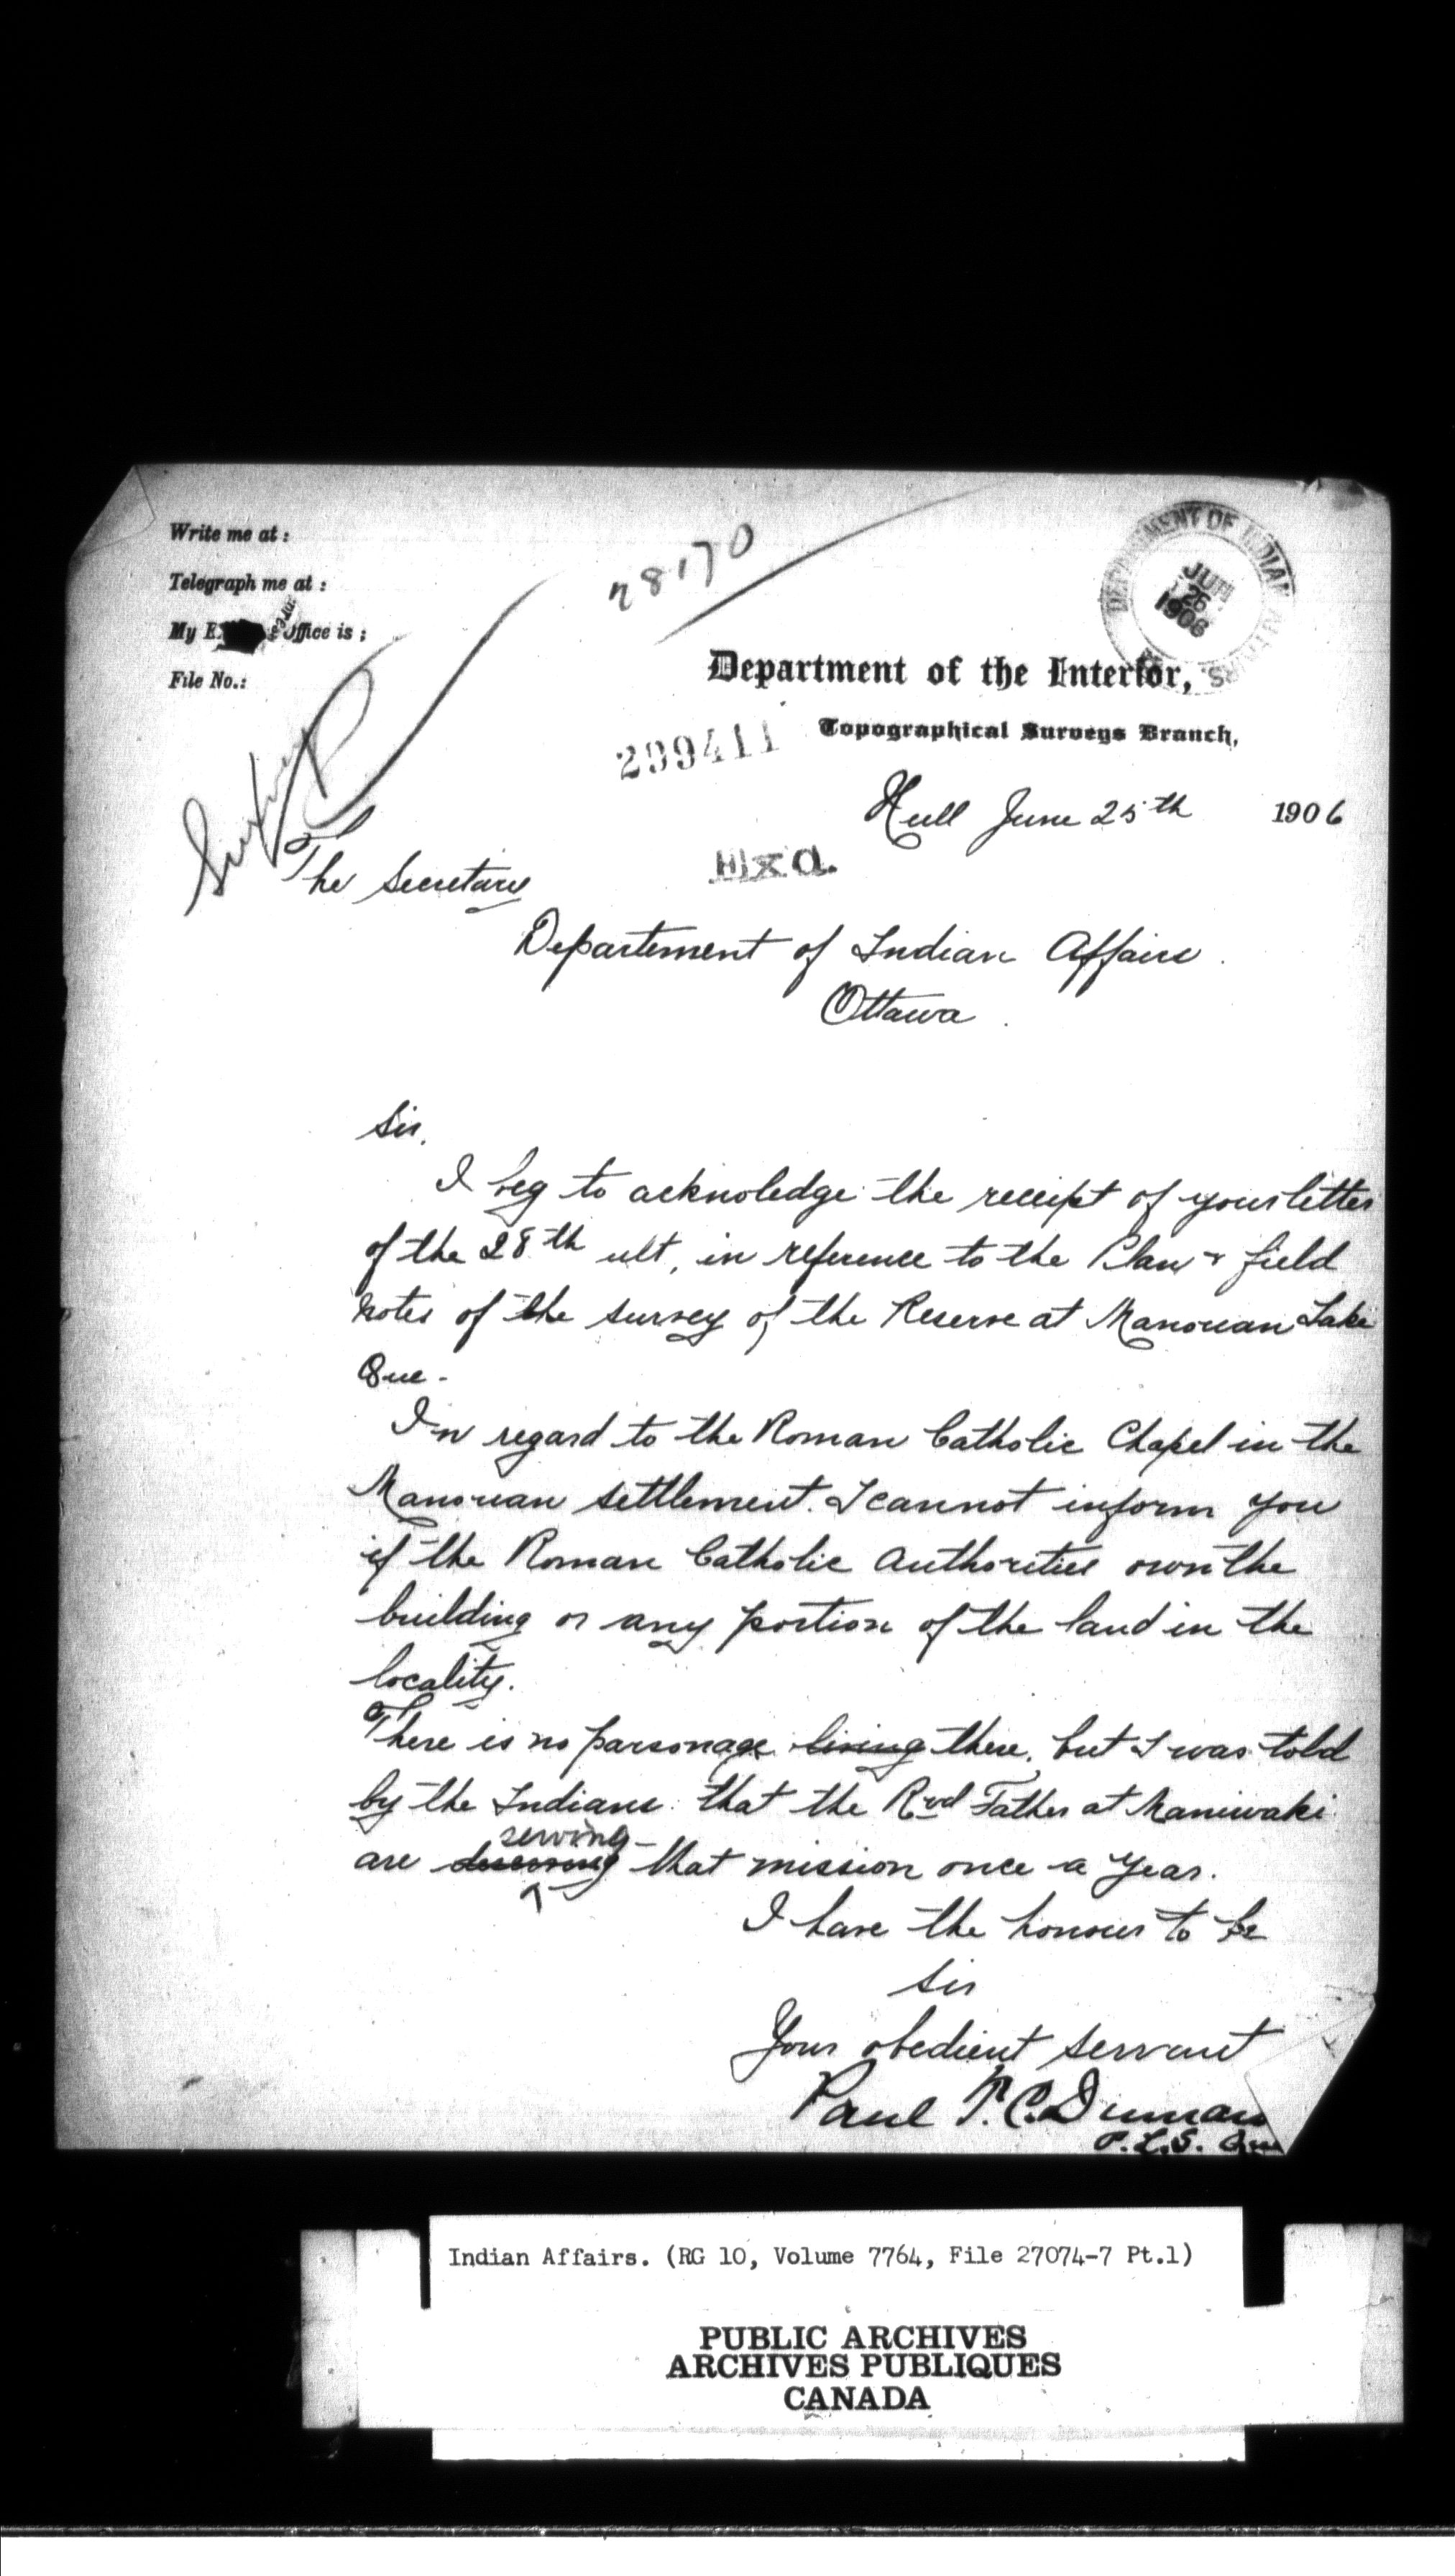 Write me at :
Telegraph me at :
My E Office is ;
File No.:
28170
DEPARTMENT OF INDIAN AFFAIRS.
JUN
26
1906
Department of the Interior,
Topographical Surveys Branch,
299411
Hull June 25th 1906
Exd.
Survey
The Secretary
Departement of Indian Affairs.
Ottawa.
Sir,
I beg to acknoledge the receipt of your letter
of the 28th ult, in reference to the Plan & field
notes of the survey of the Reserve at Manouan Lake
Que-
In regard to the Roman Catholic Chapel in the
Manouan settlement. I cannot inform you
if the Roman Catholic Authorities own the
building or any portion of the land in the
locality.
There is no parsonage living there, but I was told
by the Indians that the Rvd Father at Maniwaki
serving
are that mission once a year.
I have the honour to be
Sir
Your obedient servant
Paul T.C. Dumais
P.L.S. Que
Indian Affairs. (RG 10, Volume 7764, File 27074-7 Pt.1)
PUBLIC ARCHIVES
ARCHIVES PUBLIQUES
CANADA